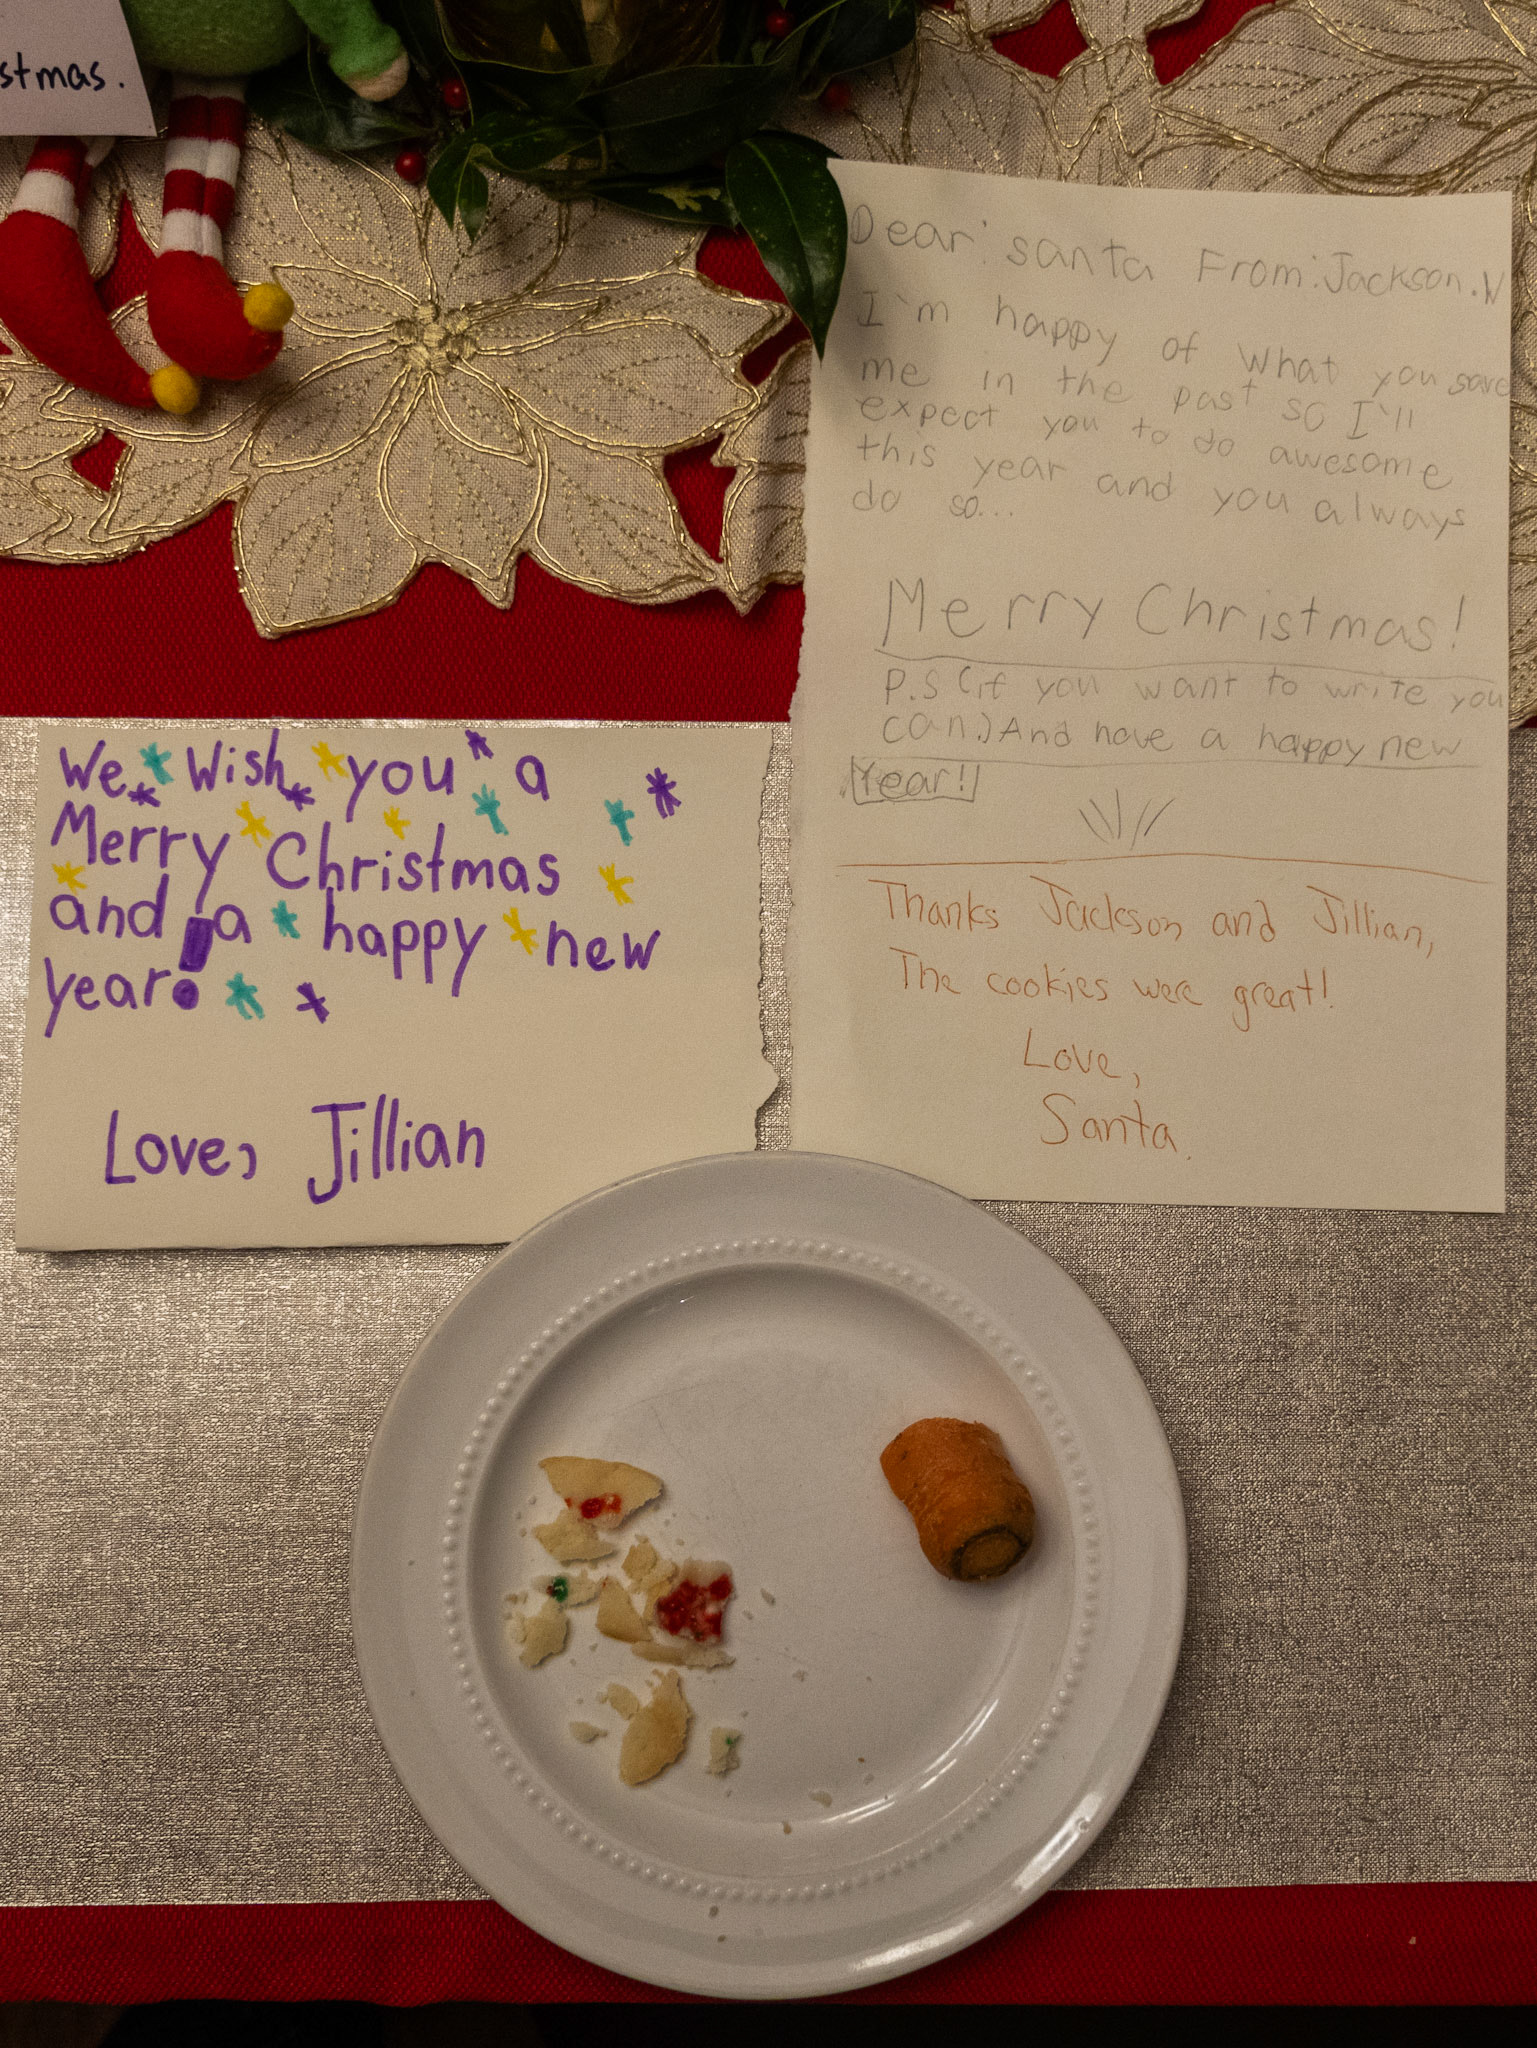 stmas.
We Wish you a
Merry Christmas
and a happy new
year!
Love, Jillian
Dear: santa From: Jackson.N
I'm happy of what you gave
me in the past so I'll
expect you to do awesome
this year and you always
do so...
Merry Christmas!
P.S (if you want to write you
can.) And have a happy new
Year!
Thanks Jackson and Jillian,
The cookies were great!
Love,
Santa.